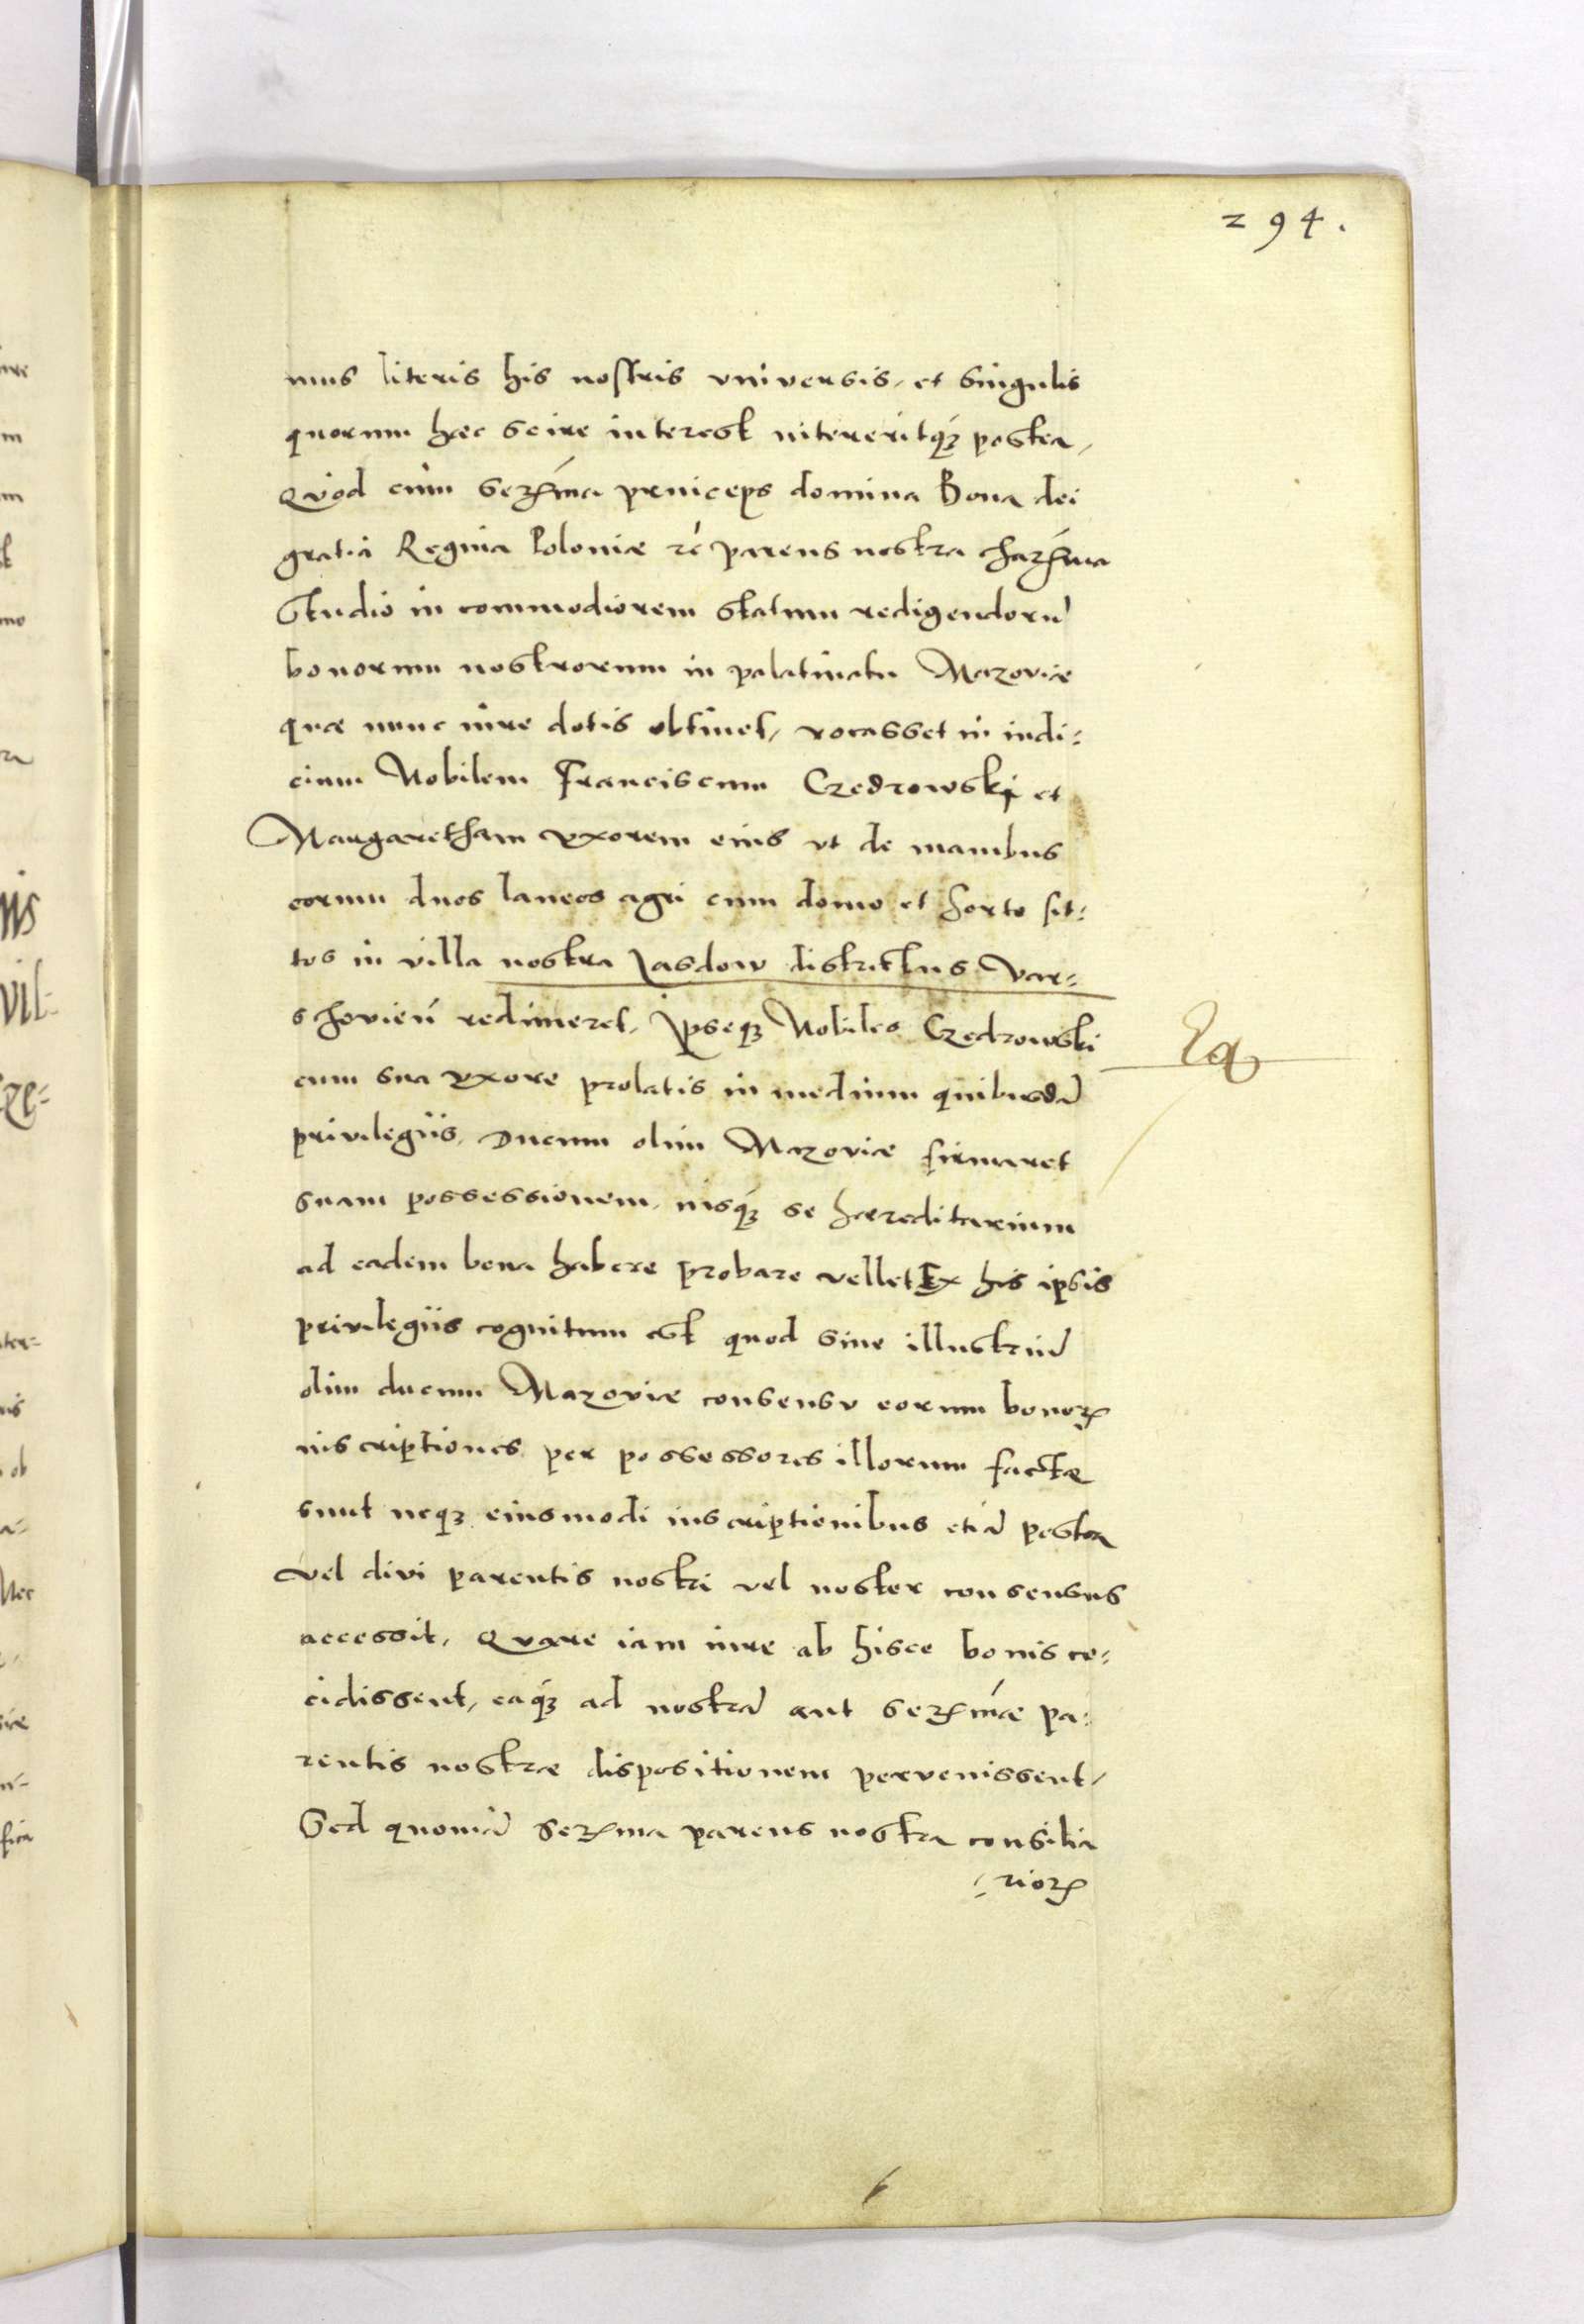 294.
mus literis his nostris universis, et singulis
quorum hæc scire interest intereritq́ꝫ postea,
Quod cùm Serꝫma princeps domina Bona dei
gratia Regina Poloniæ ꝛc̀ parens nostra charꝫma
studio in commodiorem statum redigendorũ
bonorum nostrorum in palatinatu Mazoviæ
quæ nunc iure dotis obtinet, vocasset in iudi⸗
cium Nobilem Franciscum Czedrowski et
Margaretham uxorem eius ut de manibus
eorum duos laneos agri cum domo et horto sit⸗
tos in villa nostra Jasdow districtus Var⸗
schovień redimeret, Ipseqꝫ Nobiles Czedrowski
cum sua uxore prolatis in medium quibusdã
privilegiis, Ducum olim Mazoviæ firmaret
suam possessionem, iusq́ꝫ se hæreditarium
ad eadem bona habere probare vellet Ex his ipsis
privilegiis cognitum est quod sine illustriũ
olim ducum Mazoviæ consensu eorum bonoꝝ
inscriptiones per possessores illorum factæ
sunt neqꝫ eiusmodi inscriptionibus etiã postea
vel divi parentis nostri vel noster consensus
accessit, Quare iam iure ab hisce bonis ce⸗
cidissent, eaq́ꝫ ad nostrã aut Serꝫmæ pa⸗
rentis nostræ dispositionem pervenissent,
Sed quoniã Serꝫma parens nostra consilia
⸗rioꝝ